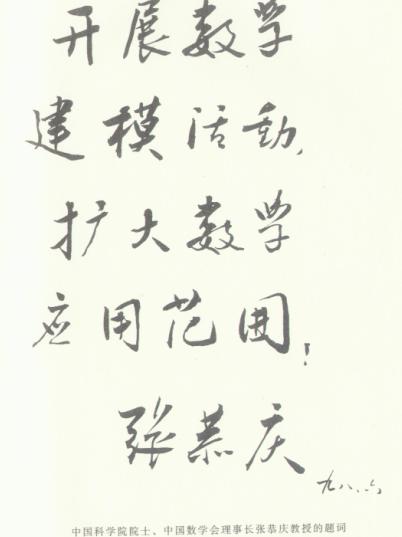 开展数学
建模活动,
扩大数学
应用范围!
张恭庆
九八.六
中国科学院院士、中国数学会理事长张恭庆教授的题词